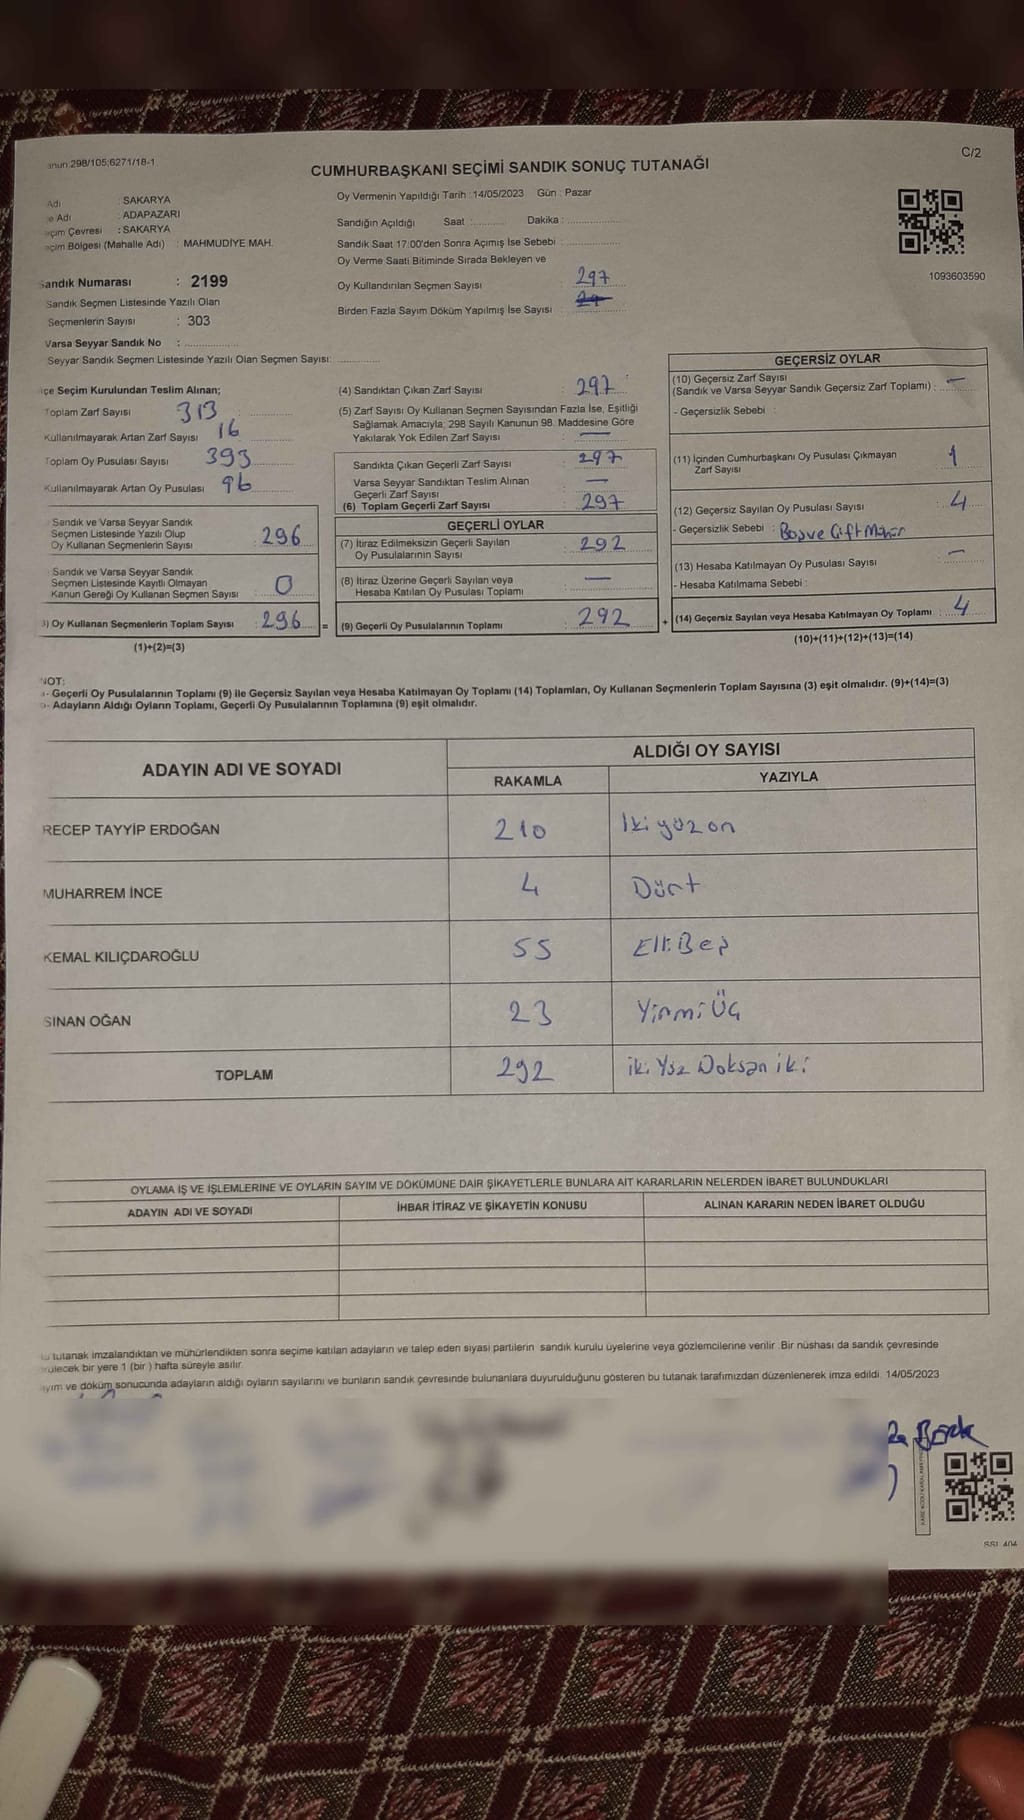 anun:298/105;6271/18-1
C/2
CUMHURBAŞKANI SEÇİMİ SANDIK SONUÇ TUTANAĞI
Adı : SAKARYA
e Adı : ADAPAZARI
eçim Çevresi : SAKARYA
eçim Bölgesi (Mahalle Adı) : MAHMUDİYE MAH.
Sandık Numarası : 2199
Sandık Seçmen Listesinde Yazılı Olan
Seçmenlerin Sayısı : 303
Varsa Seyyar Sandık No :
Seyyar Sandık Seçmen Listesinde Yazılı Olan Seçmen Sayısı:
Oy Vermenin Yapıldığı Tarih :14/05/2023 Gün : Pazar
Sandığın Açıldığı Saat : Dakika :
Sandık Saat 17:00'den Sonra Açımış İse Sebebi :
Oy Verme Saati Bitiminde Sırada Bekleyen ve
Oy Kullandırılan Seçmen Sayısı : 297
Birden Fazla Sayım Döküm Yapılmış İse Sayısı :
1093603590
içe Seçim Kurulundan Teslim Alınan;
Toplam Zarf Sayısı 313
Kullanılmayarak Artan Zarf Sayısı 16
Toplam Oy Pusulası Sayısı 393
Kullanılmayarak Artan Oy Pusulası 96
Sandık ve Varsa Seyyar Sandık
Seçmen Listesinde Yazılı Olup
Oy Kullanan Seçmenlerin Sayısı : 296
Sandık ve Varsa Seyyar Sandık
Seçmen Listesinde Kayıtlı Olmayan
Kanun Gereği Oy Kullanan Seçmen Sayısı : 0
3) Oy Kullanan Seçmenlerin Toplam Sayısı : 296 =
(1)+(2)=(3)
(4) Sandıktan Çıkan Zarf Sayısı : 297
(5) Zarf Sayısı Oy Kullanan Seçmen Sayısından Fazla İse, Eşitliği
Sağlamak Amacıyla; 298 Sayılı Kanunun 98. Maddesine Göre
Yakılarak Yok Edilen Zarf Sayısı : —
Sandıkta Çıkan Geçerli Zarf Sayısı : 297
Varsa Seyyar Sandıktan Teslim Alınan
Geçerli Zarf Sayısı : —
(6) Toplam Geçerli Zarf Sayısı : 297
GEÇERLİ OYLAR
(7) İtiraz Edilmeksizin Geçerli Sayılan
Oy Pusulalarının Sayısı : 292
(8) İtiraz Üzerine Geçerli Sayılan veya
Hesaba Katılan Oy Pusulası Toplamı : —
(9) Geçerli Oy Pusulalarının Toplamı : 292 +
GEÇERSİZ OYLAR
(10) Geçersiz Zarf Sayısı
(Sandık ve Varsa Seyyar Sandık Geçersiz Zarf Toplamı) : —
- Geçersizlik Sebebi :
(11) İçinden Cumhurbaşkanı Oy Pusulası Çıkmayan
Zarf Sayısı : 1
(12) Geçersiz Sayılan Oy Pusulası Sayısı : 4
- Geçersizlik Sebebi : Boş ve Çift Mühür
(13) Hesaba Katılmayan Oy Pusulası Sayısı : —
- Hesaba Katılmama Sebebi :
(14) Geçersiz Sayılan veya Hesaba Katılmayan Oy Toplamı : 4
(10)+(11)+(12)+(13)=(14)
NOT:
- Geçerli Oy Pusulalarının Toplamı (9) ile Geçersiz Sayılan veya Hesaba Katılmayan Oy Toplamı (14) Toplamları, Oy Kullanan Seçmenlerin Toplam Sayısına (3) eşit olmalıdır. (9)+(14)=(3)
- Adayların Aldığı Oyların Toplamı, Geçerli Oy Pusulalarının Toplamına (9) eşit olmalıdır.
ADAYIN ADI VE SOYADI
ALDIĞI OY SAYISI
RAKAMLA YAZIYLA
RECEP TAYYİP ERDOĞAN 210 İki yüz on
MUHARREM İNCE 4 Dört
KEMAL KILIÇDAROĞLU 55 Elli Beş
SİNAN OĞAN 23 Yirmi Üç
TOPLAM 292 iki Yüz Doksan iki
OYLAMA İŞ VE İŞLEMLERİNE VE OYLARIN SAYIM VE DÖKÜMÜNE DAİR ŞİKAYETLERLE BUNLARA AİT KARARLARIN NELERDEN İBARET BULUNDUKLARI
ADAYIN ADI VE SOYADI İHBAR İTİRAZ VE ŞİKAYETİN KONUSU ALINAN KARARIN NEDEN İBARET OLDUĞU
tutanak imzalandıktan ve mühürlendikten sonra seçime katılan adayların ve talep eden siyasi partilerin sandık kurulu üyelerine veya gözlemcilerine verilir. Bir nüshası da sandık çevresinde
rülecek bir yere 1 (bir ) hafta süreyle asılır.
ayım ve döküm sonucunda adayların aldığı oyların sayılarını ve bunların sandık çevresinde bulunanlara duyurulduğunu gösteren bu tutanak tarafımızdan düzenlenerek imza edildi. 14/05/2023